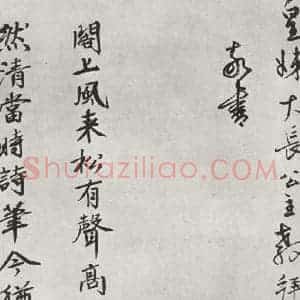 皇姊大長公主教拜
敬書
閣上風来松有聲高
然清當時詩筆今猶
Shufaziliao.COM